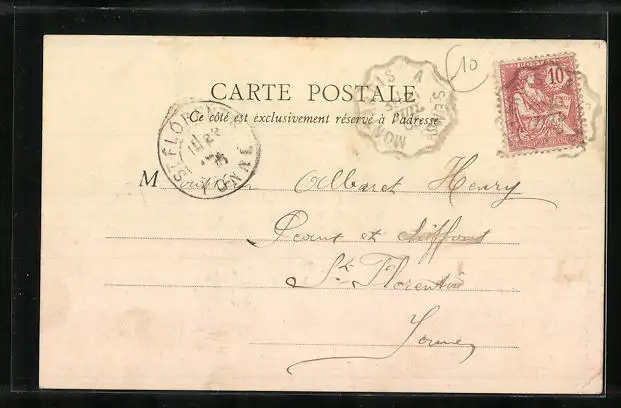 10
POSTES
10
MONTARGIS A SENS
CARTE POSTALE
Ce côté est exclusivement réservé à l'adresse
ST FLORENTIN YONNE
M Albaret Henry
Peaux et chiffons
St Florentin
Yonne